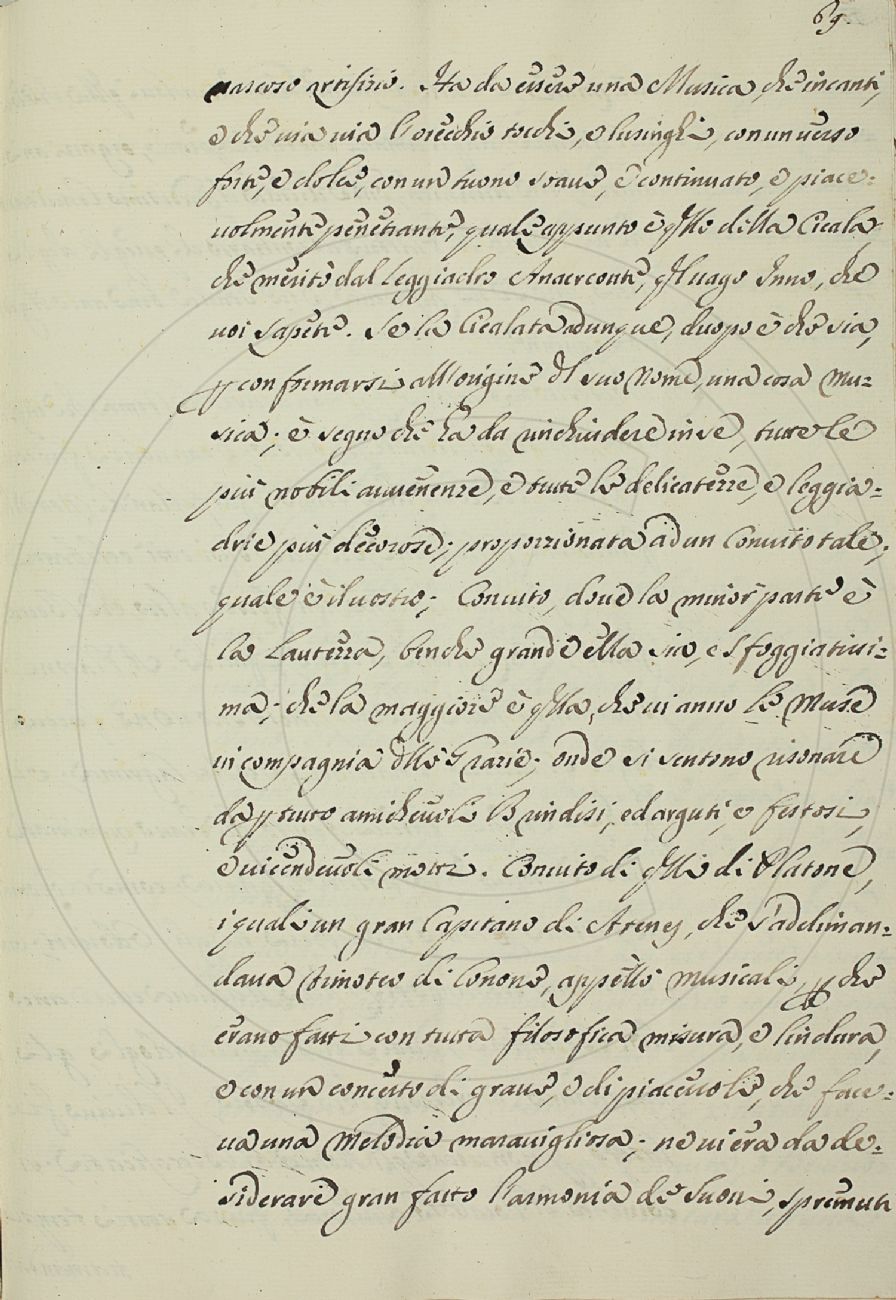 69.
nascoso artifizio. Ha da essere una Musica, che incanti,
e che via via l'orecchio tocchi, e lusinghi, con un verso
forte, e dolce, con un tuono soave, e continuato, e piace=
volmente penetrante, quale appunto è qllo della Cicala
che meritò dal leggiadro Anacreonte, ql vago Inno, che
voi sapete. Se la Cicalata adunque, duopo è che sia,
p conformarsi all'origine dl suo nome, una cosa mu=
sica; è segno che ha da rinchiudere in se, tutte le
più nobili avvenenze, e tutte le delicatezze, e leggia=
drie più decorose; proporzionata ad un Convito tale,
quale è il vostro; Convito, dove la minor parte è
la Lautezza, benche grande ella sia, e sfoggiatissi=
ma; che la maggiore è qlla, che vi anno le Muse
in compagnia dlle Grazie; onde si sentono risonare
da p tutto amichevoli Brindisi, ed arguti, e festosi,
e vicendevoli motti. Convito di qlli di Platone,
i quali un gran Capitano di Atene, che s'addiman=
dava Timoteo di Conone, appellò musicali, p che
erano fatti con tutta filosofica misura, e lindura,
e con un concerto di grave, e di piacevole, che face=
va una melodia maravigliosa; ne vi era da de=
siderare gran fatto l'armonia de Suoni, spremuti